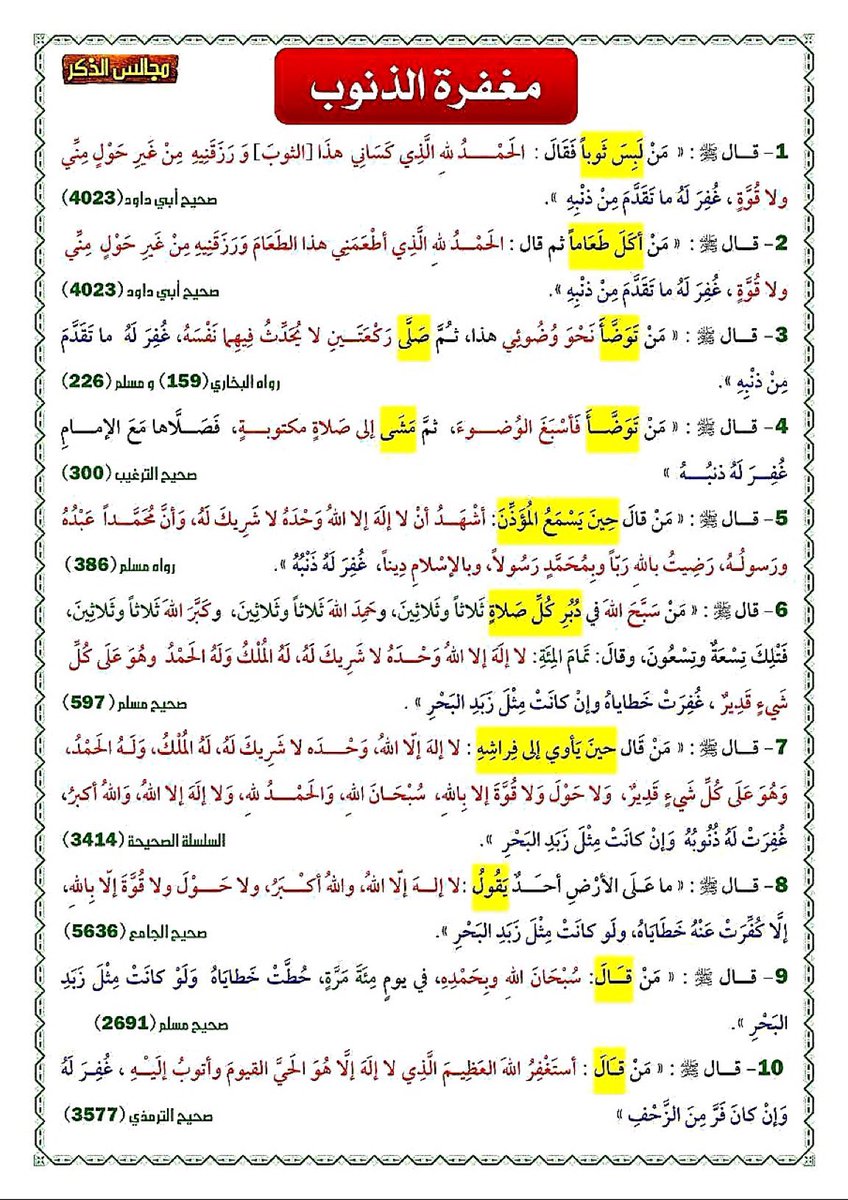 مجالس الذكر
مغفرة الذنوب
1- قــال ﷺ : « مَنْ لَبِسَ ثَوباً فَقَالَ : الحَمْــدُ للهِ الَّذِي كَسَانِي هذَا [الثوبَ] وَ رَزَقَنِيهِ مِنْ غَيرِ حَوْلٍ مِنِّي
ولا قُوَّةٍ ، غُفِرَ لَهُ ما تَقَدَّمَ مِنْ ذنْبِهِ ». صحيح أبي داود(4023)
2- قــال ﷺ : « مَنْ أكَلَ طَعَاماً ثم قال : الحَمْـدُ للهِ الَّذِي أطْعَمَنِي هذا الطَعَامَ وَرَزَقَنِيهِ مِنْ غَيرِ حَوْلٍ مِنِّي
ولا قُوَّةٍ ، غُفِرَ لَهُ ما تَقَدَّمَ مِنْ ذَنْبِهِ ». صحيح أبي داود(4023)
3- قــال ﷺ : « مَنْ تَوَضَّأَ نَحْوَ وُضُوئِي هذا، ثُـمَّ صَلَّى رَكْعَتَــينِ لا يُحَدِّثُ فِيهِما نَفْسَهُ، غُفِرَ لَهُ ما تَقَدَّمَ
مِنْ ذنْبِهِ ». رواه البخاري(159) و مسلم (226)
4- قــال ﷺ : « مَنْ تَوَضَّــأ فَأسْبَغَ الوُضُــوءَ، ثمَّ مَشَى إلى صَلاةٍ مكتوبــةٍ، فَصَــلَّاها مَعَ الإمــامِ
غُفِــرَ لَهُ ذنبُــهُ » صحيح الترغيب (300)
5- قــال ﷺ : « مَنْ قالَ حِينَ يَسْمَعُ المُؤَذِّنَ: أشْهَــدُ أنْ لا إلَهَ إلا اللهُ وَحْدَهُ لا شَرِيكَ لَهُ، وَأنَّ مُحَمَّــداً عَبْدُهُ
ورَسولُـهُ، رَضِيتُ باللهِ رَبّاً وبِمُحَمَّدٍ رَسُولاً، وبالإسْلامِ دِيناً، غُفِرَ لَهُ ذَنْبُهُ ». رواه مسلم (386)
6- قال ﷺ : « مَنْ سَبَّحَ اللهَ في دُبُرِ كُلِّ صَلاةٍ ثَلاثاً وثَلاثِينَ، وحَمِدَ اللهَ ثَلاثاً وثَلاثِينَ، وكَبَّرَ اللهَ ثَلاثاً وثَلاثِينَ،
فَتْلِكَ تِسْعَةٌ وتِسْعُونَ، وقالَ: تَمَامَ المِئَةِ: لا إلَهَ إلا اللهُ وَحْـدَهُ لا شَرِيكَ لَهُ، لَهُ المُلْكُ وَلَهُ الحَمْدُ وهُوَ عَلَى كُلِّ
شَيءٍ قَدِيرٌ ، غُفِرَتْ خَطاياهُ وإنْ كانَتْ مِثْلَ زَبَدِ البَحْرِ » . صحيح مسلم (597)
7- قــال ﷺ : « مَنْ قَال حينَ يَأوي إلى فِراشِهِ : لا إلهَ إلّا اللهُ، وَحْــدَه لا شَرِيكَ لَهُ، لَهُ المُلْكُ، وَلَـهُ الحَمْدُ،
وَهُوَ عَلَى كُلِّ شَيءٍ قَدِيرٌ، وَلا حَوْلَ وَلا قُوَّةَ إلا بِاللهِ، سُبْحَـانَ اللهِ، وَالحَمْــدُ للهِ، وَلا إلَهَ إلا اللهُ، وَاللهُ أكبرُ،
غُفِرَتْ لَهُ ذُنُوبُهُ وَإنْ كانَتْ مِثْلَ زَبَدِ البَحْرِ ». السلسلة الصحيحة (3414)
8- قــال ﷺ : « ما عَلَى الأرْضِ أحــدٌ يَقُولُ :لا إلــهَ إلّا اللهُ، واللهُ أكْـبَرُ، ولا حَــوْلَ ولا قُوَّةَ إلّا بِاللهِ،
إلَّا كُفِّرَتْ عَنْهُ خَطَايَاهُ، ولَو كانَتْ مِثْلَ زَبَدِ البَحْرِ ». صحيح الجامع (5636)
9- قــال ﷺ : « مَنْ قــالَ: سُبْحَانَ اللهِ وبِحَمْدِهِ، في يومٍ مِئَةَ مَرَّةٍ، حُطَّتْ خَطاياهُ وَلَوْ كانَتْ مِثْلَ زَبَدِ
البَحْرِ ». صحيح مسلم (2691)
10- قــال ﷺ : « مَنْ قالَ : أستَغْفِرُ اللهَ العَظِيمَ الَّذِي لا إلَهَ إلَّا هُوَ الحَيَّ القيومَ وأتوبُ إلَيْــهِ ، غُفِــرَ لَهُ
وَإنْ كانَ فَرَّ مِنَ الزَّحْفِ » صحيح الترمذي (3577)